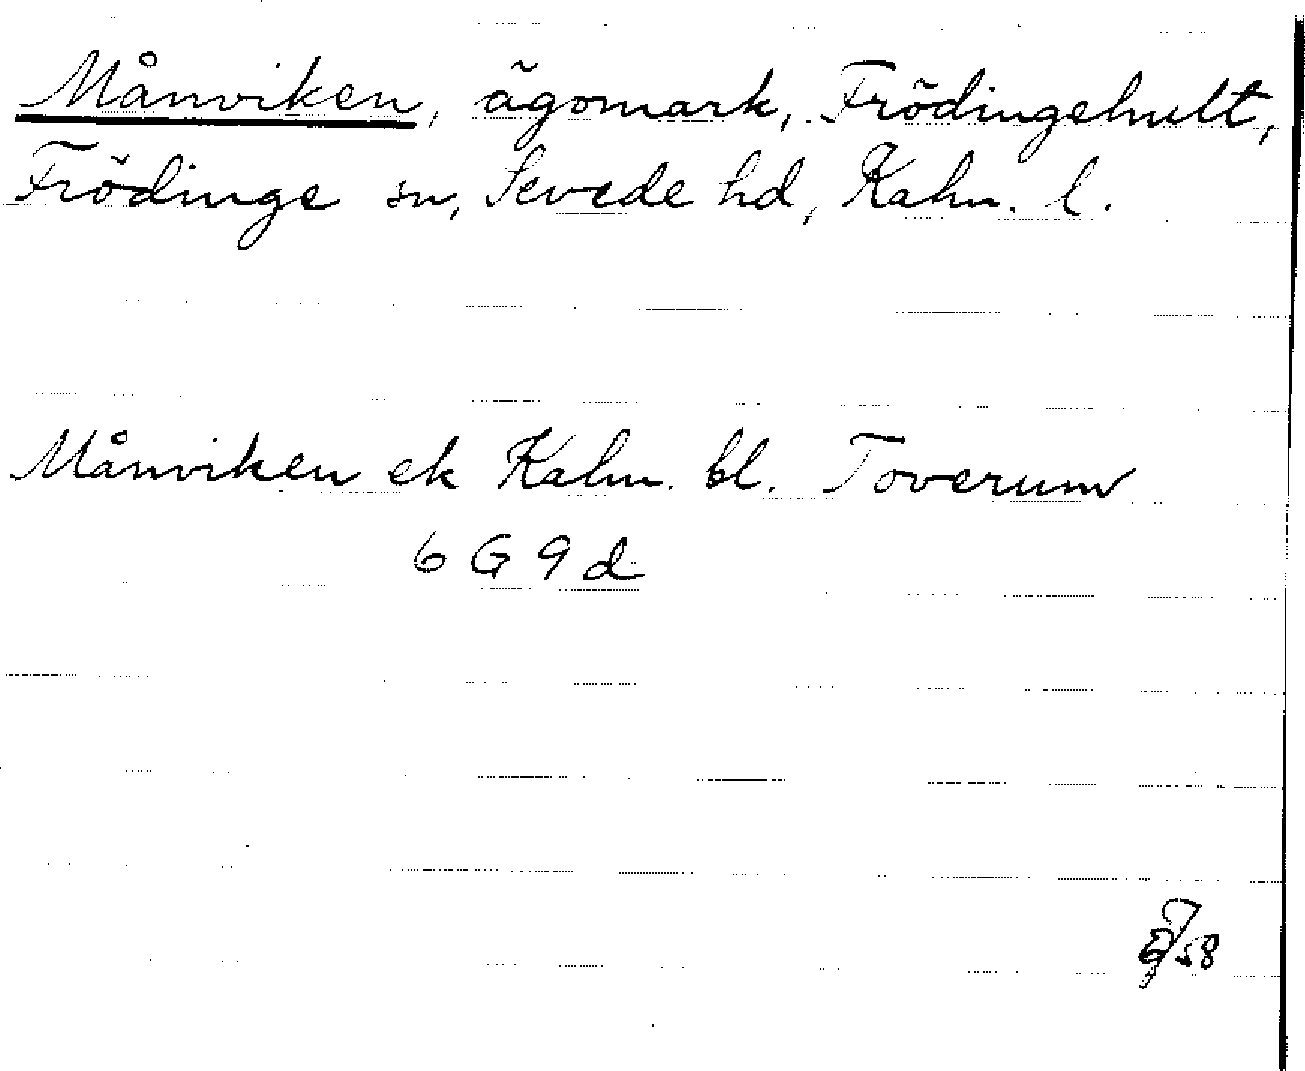 Månviken, ägomark, Frödingehult,
Frödinge sn, Sevede hd, Kalm. l.
Månviken ek Kalm. bl. Toverum
6 G 9 d
58